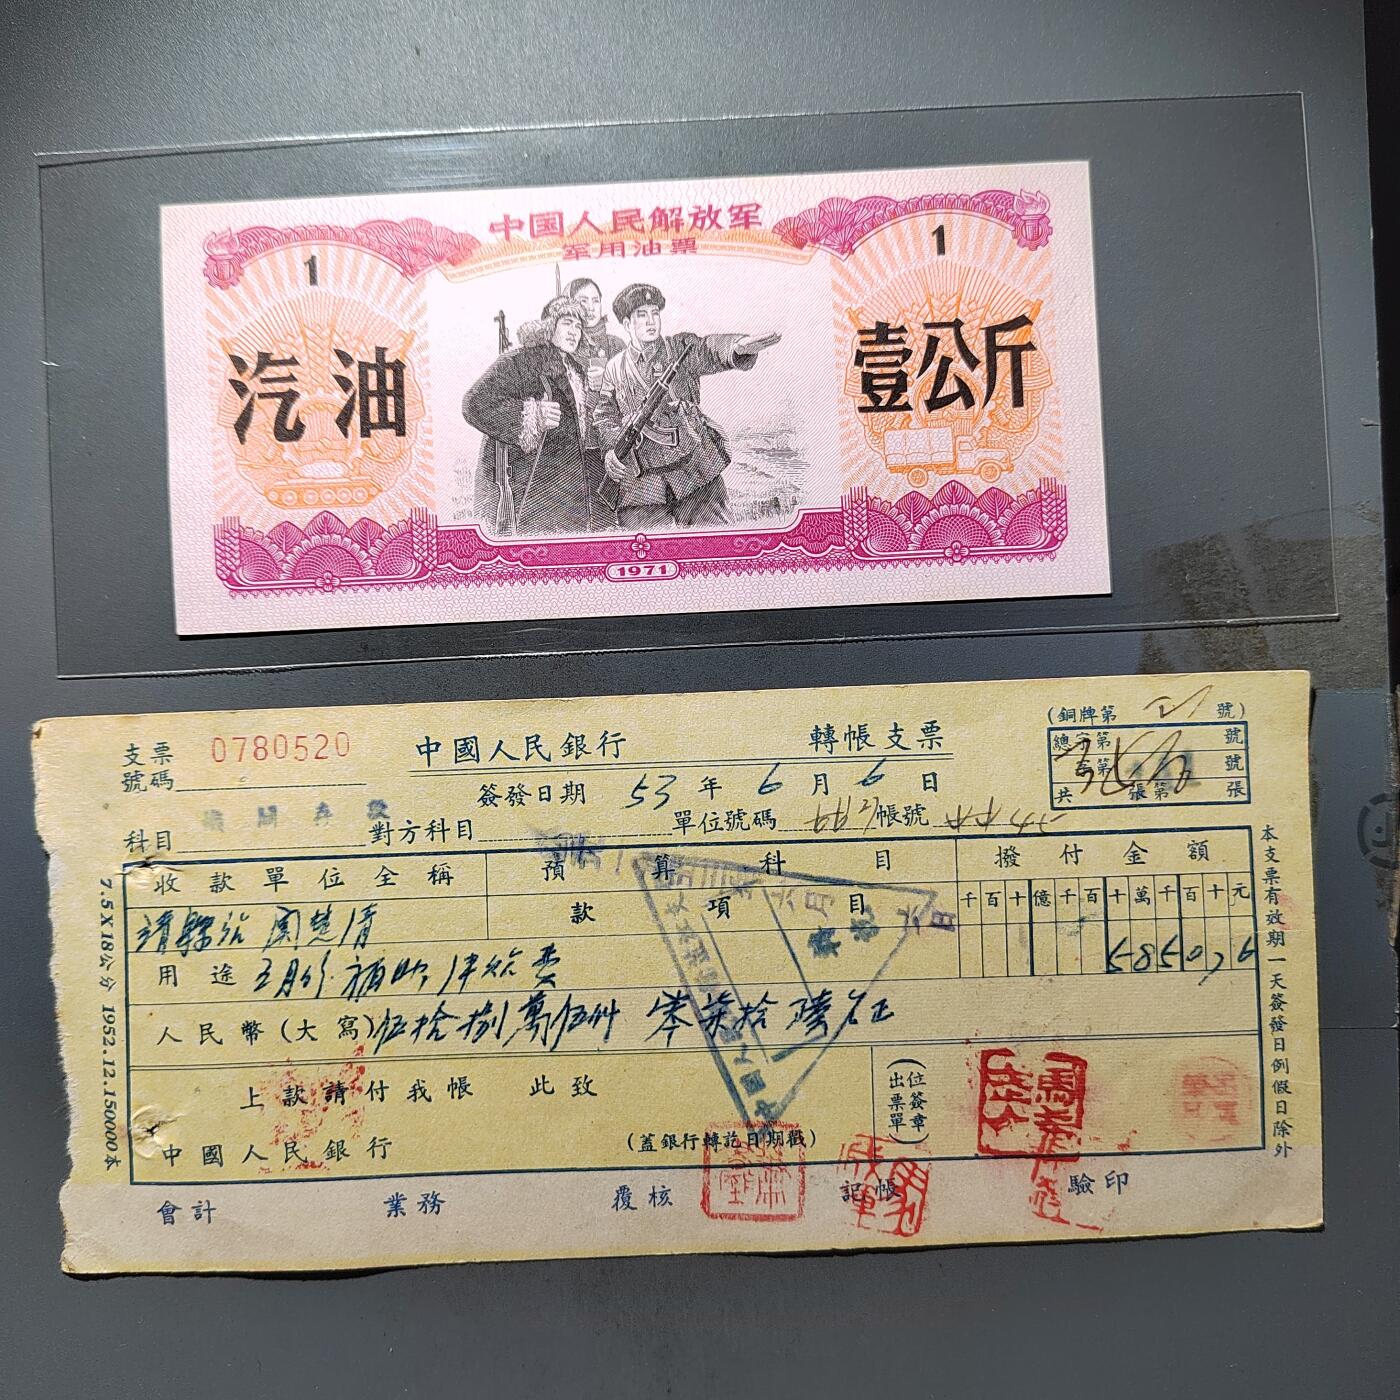 中国人民解放军
军用油票
1
1
汽油
壹公斤
1971
(銅牌第 號)
支票號碼 0780520
中國人民銀行 轉帳支票
總字第 號
字第 號
共 張第 張
簽發日期 53年6月6日
科目 對方科目 單位號碼 帳號
收款單位全稱 預算科目 撥付金額
款 項 目
千百十億千百十萬千百十元
585076
用途 五月份補助
人民幣(大寫)伍拾捌萬伍仟零柒拾陸元正
上款請付我帳 此致
中國人民銀行
(蓋銀行轉訖日期戳)
(出票單位簽章)
會計 業務 覆核 記帳 驗印
7.5X18公分 1952.12.15000本
本支票有效期一天簽發日例假日除外